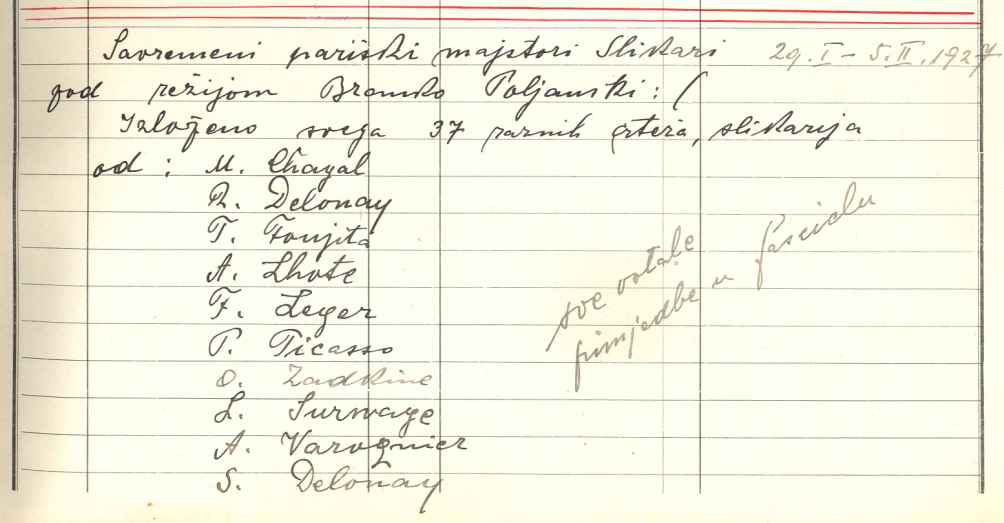 Savremeni pariski majstori Slikari 29.I - 5.II.1927
pod režijom Branko Poljanski : (
Izloženo svega 37 raznih crteža, slikarija
od : M. Chagal
R. Delonay
T. Foujita
A. Lhote
F. Leger
P. Picasso
O. Zadkine
L. Survage
A. Varognier
S. Delonay
sve ostale
primjedbe u fasciclu